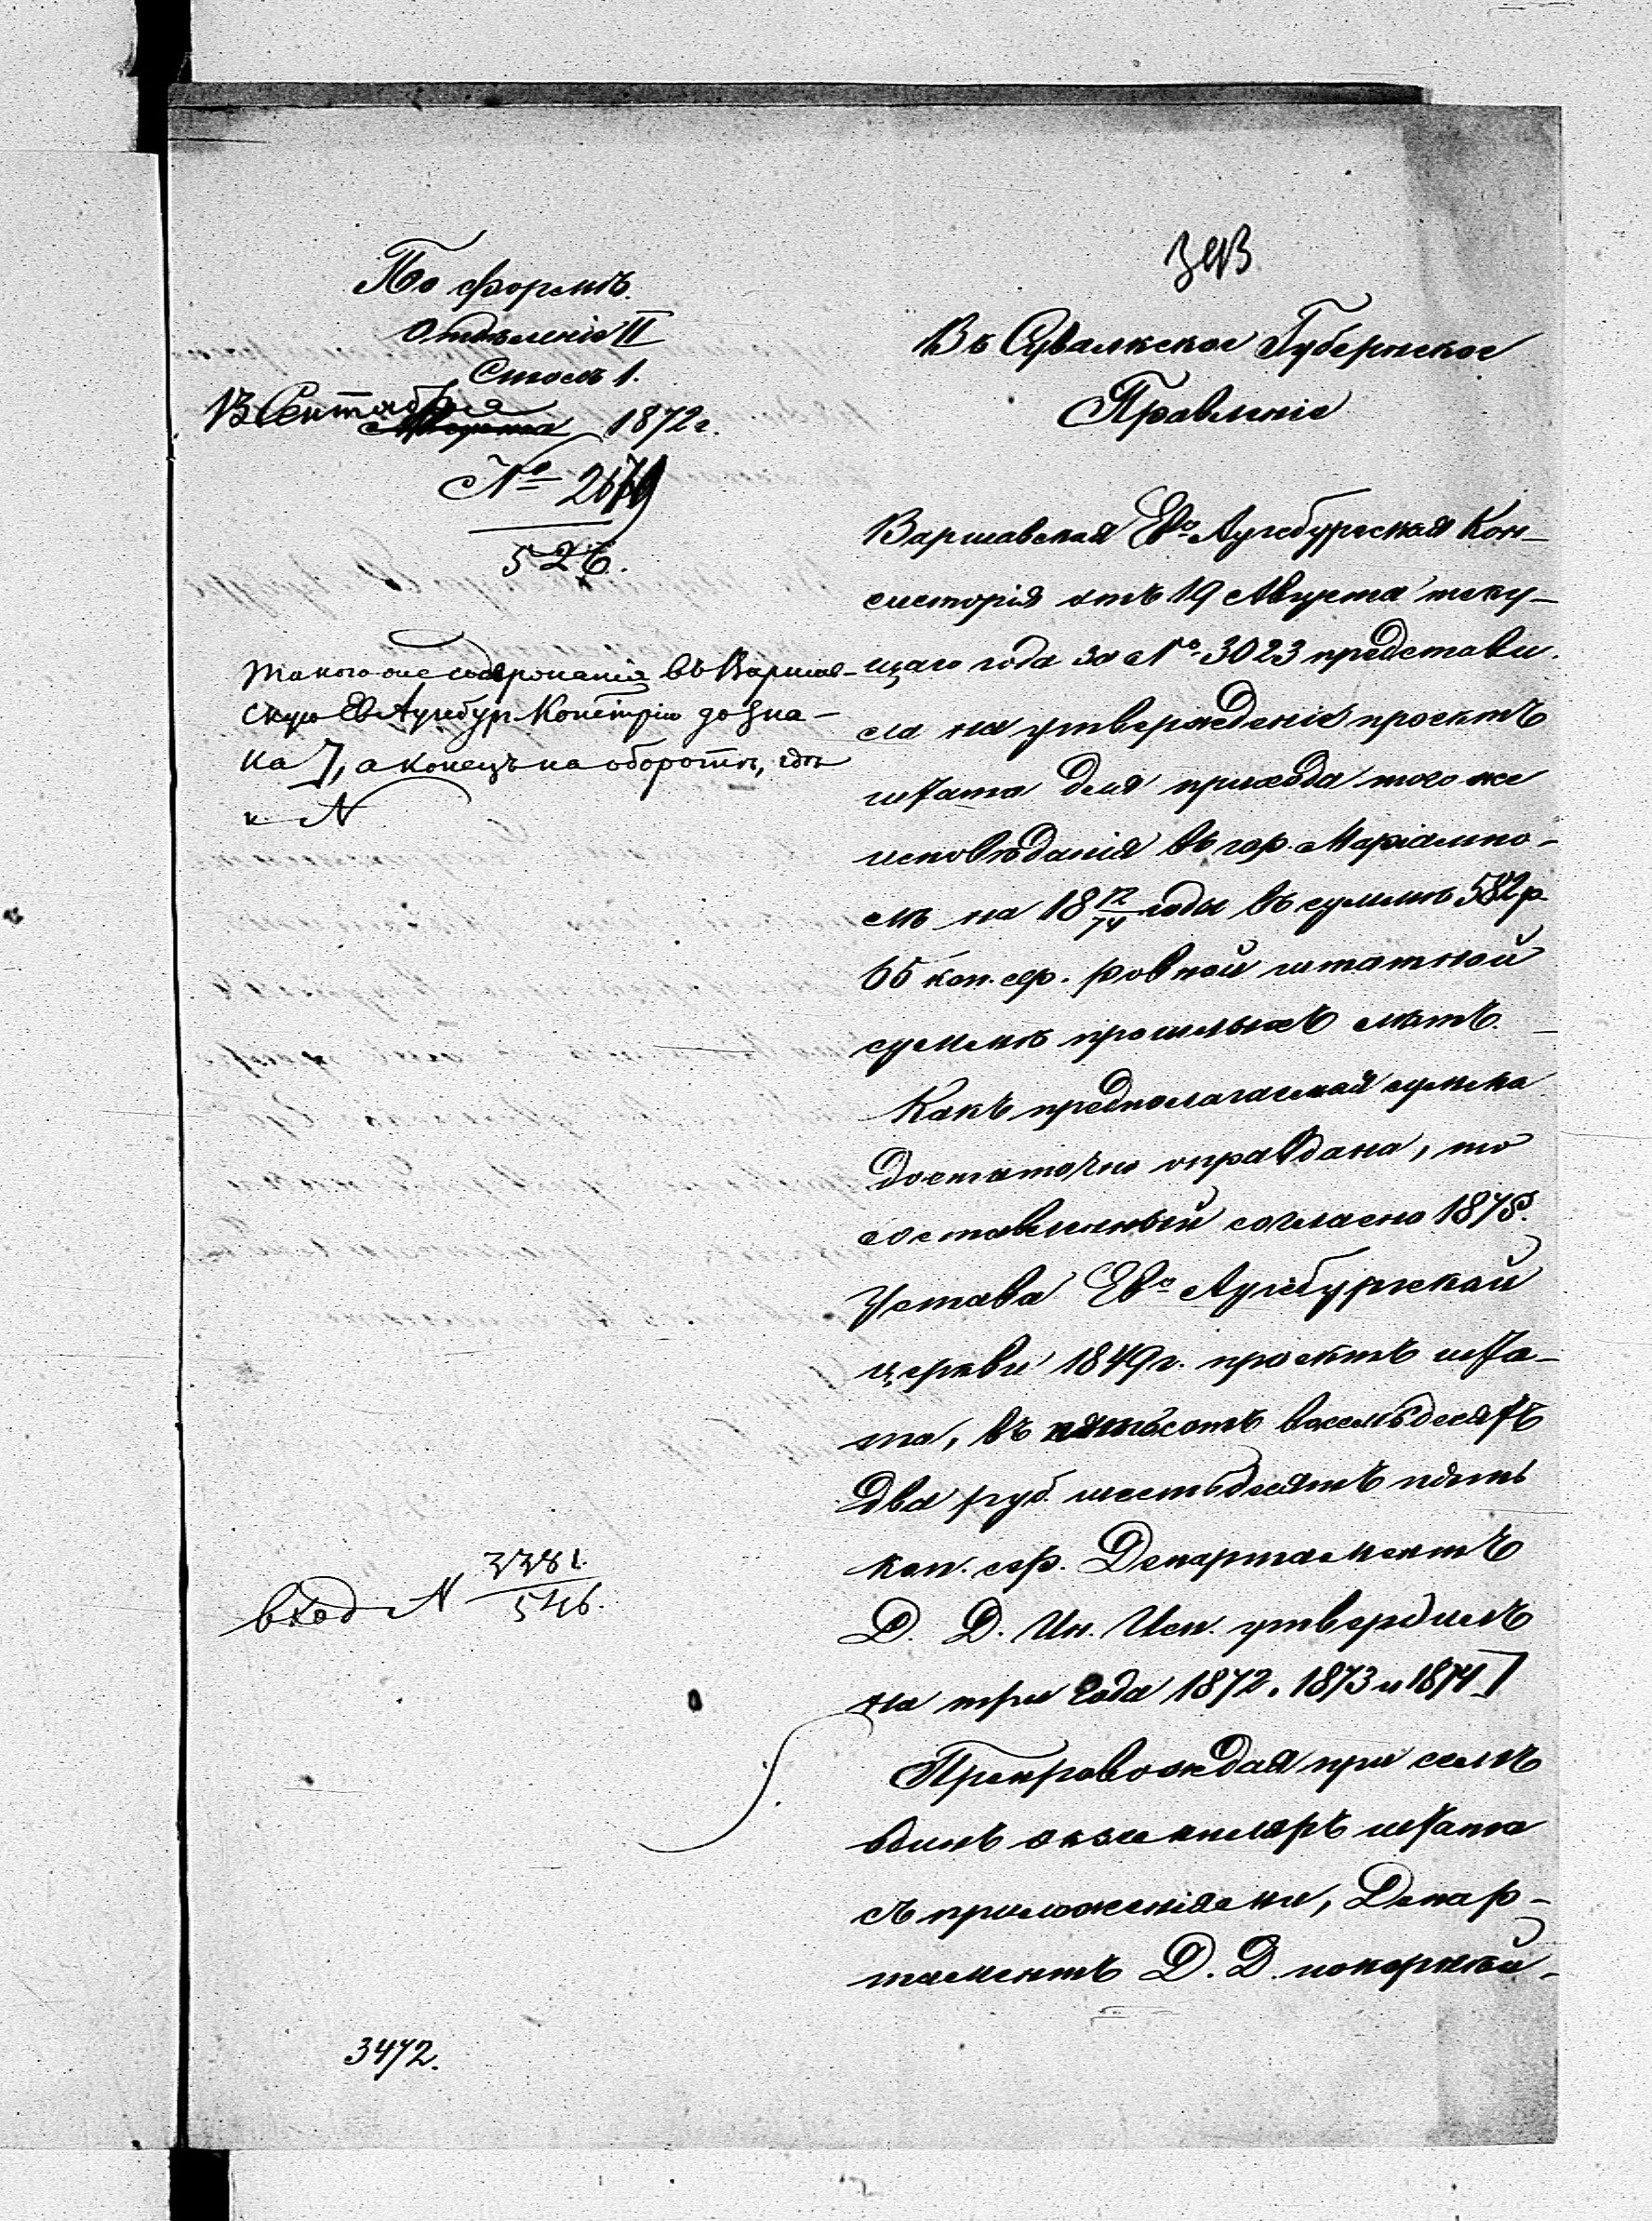 По формѣ.
Отдѣленіе II
Столъ 1.
13 Сентября
Августа 1872 г.
№ 2679
526.
такого же содержанія въ Варшав-
скую Ев Аугсбур.Конс-торію до зна-
ка ], а конецъ на оборотѣ, гдѣ
и N
вход N 3381.
546.
3472.
Въ Сувалкское Губернское
Правленіе
Варшавская Ево Аугсбургская Кон-
систорія отъ 19 Августа теку-
щаго года за № 3023 представи-
ла на утвержденіе проектъ
штата для прихода того же
исповѣданія въ гор. Маріампо-
лѣ на 18 72/74 годы въ суммѣ 582 р.
65 коп. сер. ровной штатной
суммѣ прошлыхъ лѣтъ.
Какъ предполагаемая сумма
достаточно оправдана, то
составленный согласно 187 §.
Устава Ево Аугсбургской
церкви 1849 г. проектъ шта-
та, въ пятьсотъ восемьдесятъ
два руб. шестьдесятъ пять
коп. сер. Департаментъ
Д. Д. Ин. Исп. утвердилъ
на три года 1872, 1873 и 1874 ]
Препровождая при семъ
одинъ экземпляръ штата
съ приложеніями, Депар-
таментъ Д. Д. покорнѣй-